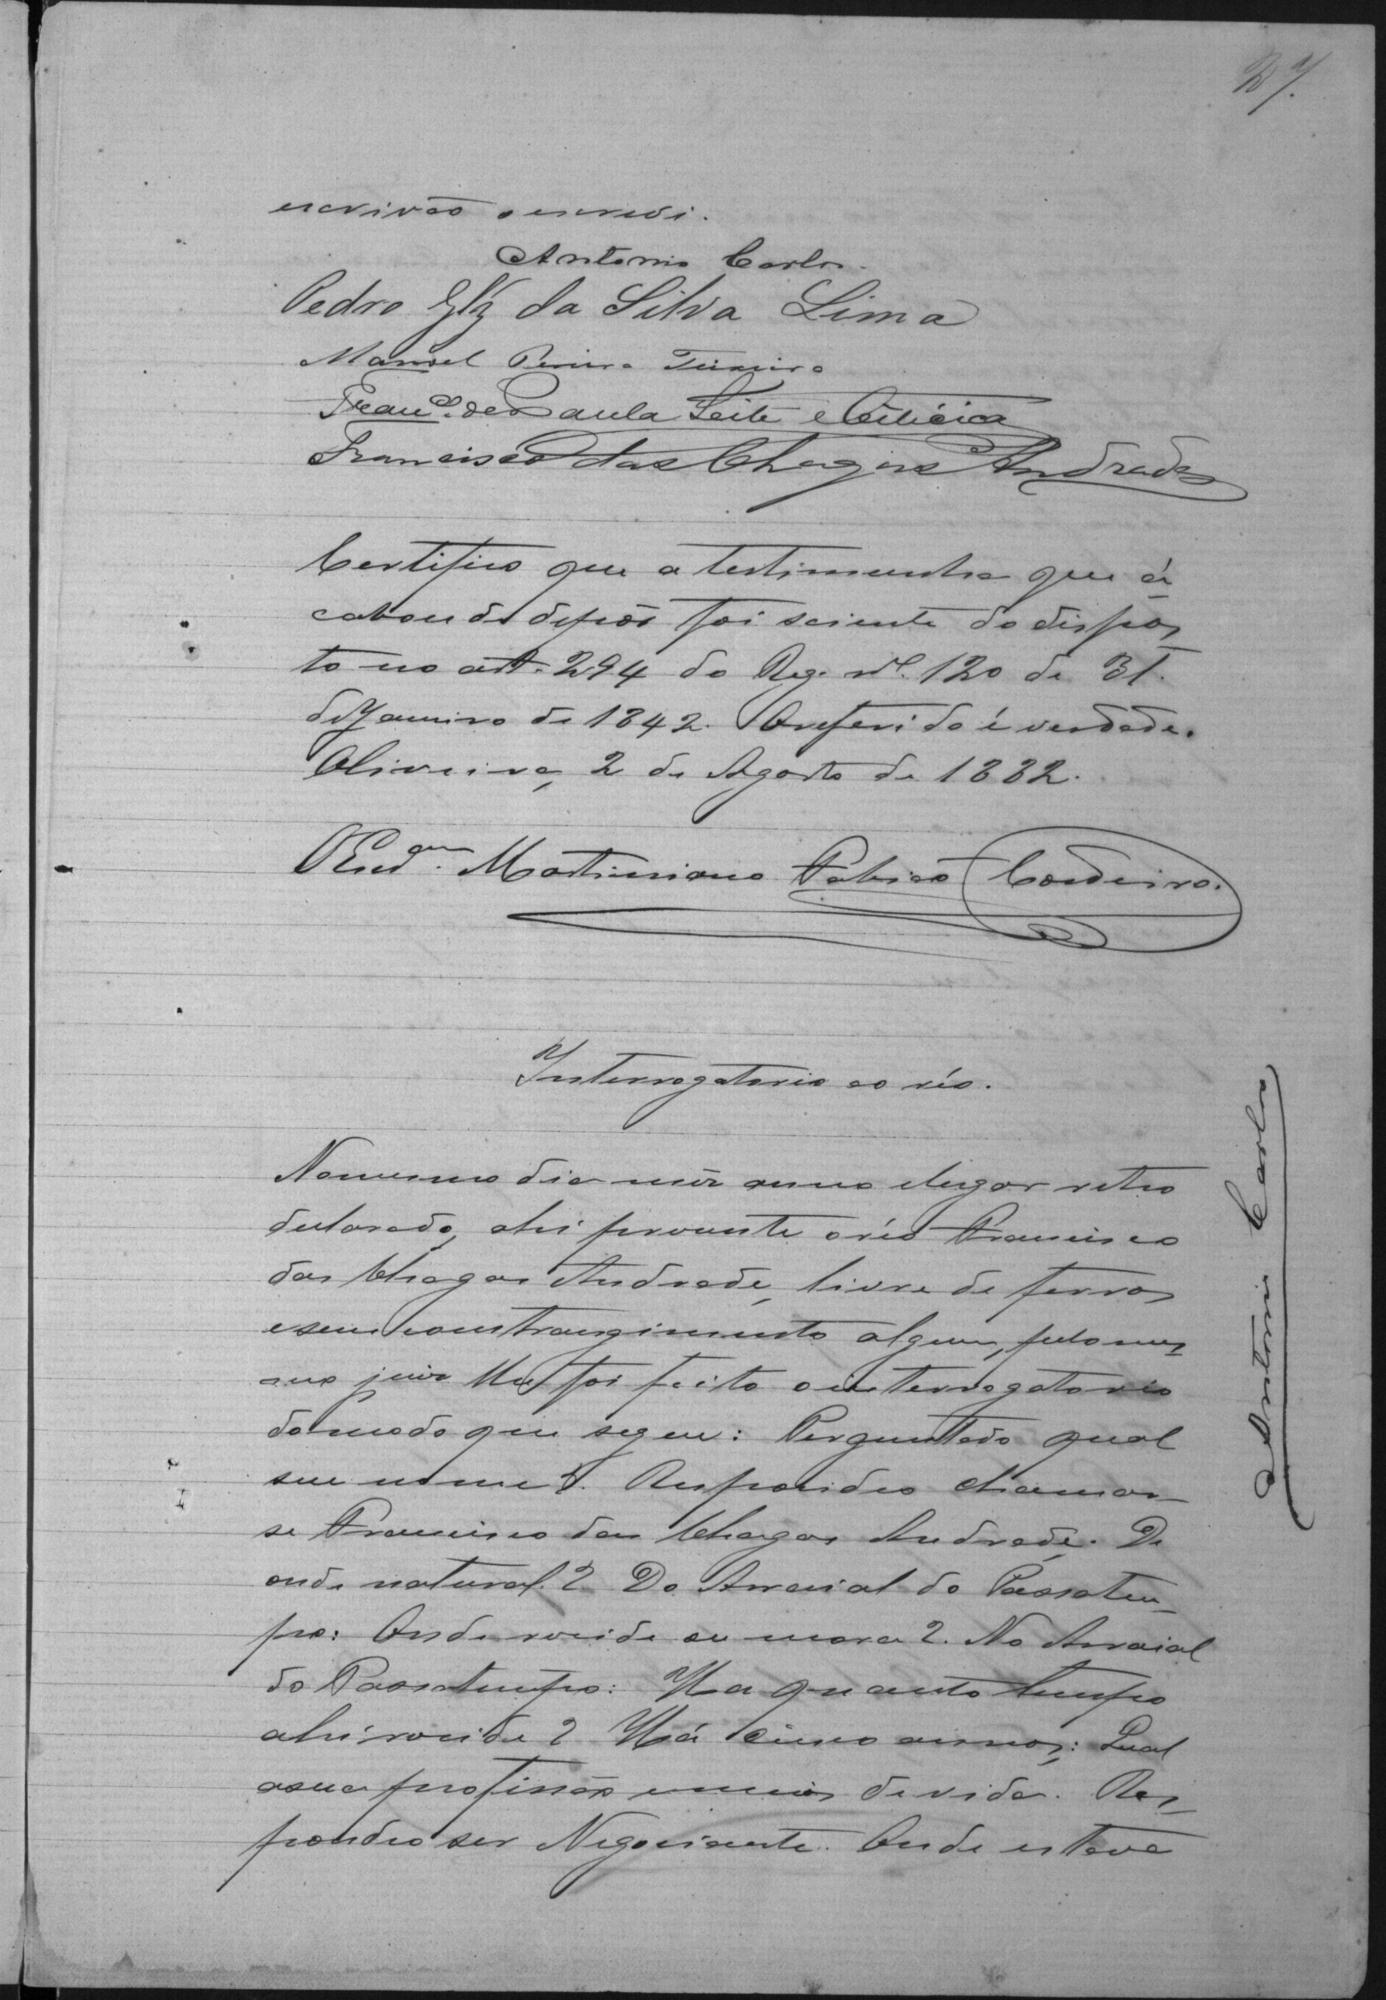 27.
escrivão o escrevi.
Antonio Carlos.
Pedro Glz da Silva Lima
Manoel Pereira Teixeira
Franco. de Paula Leite e
Francisco das Chagas Andrade
Certifico que a testimunha que á
cabou de depôr foi sciente do dispos
to no art. 294 do Reg. nº. 120 de 31.
de Janeiro de 1842. O referido é verdade.
Oliveira, 2 de Agosto de 1882.
O Martiniano Cordeiro.
Interrogatorio ao réo.
No mesmo dia mez anno e lugar retro
declarado, ahi presente o réo Francisco
das Chagas Andrade, livre de ferros
e sem constrangimento algum, pelo mes_
mo juiz lhe foi feito o interrogatorio
do modo que segue: Perguntado qual
seu nome?. Respondeo chamar_
se Francisco das Chagas Andrade. De
onde natural? Do Arraial do Passatem_
po: Onde reside ou mora?. No Arraial
do Passatempo: Ha quanto tempo
ahi reside? Há cinco annos: Qual
a sua profissão e meios de vida. Res_
pondeo ser Negociante. Onde estava
Antonio Carlos